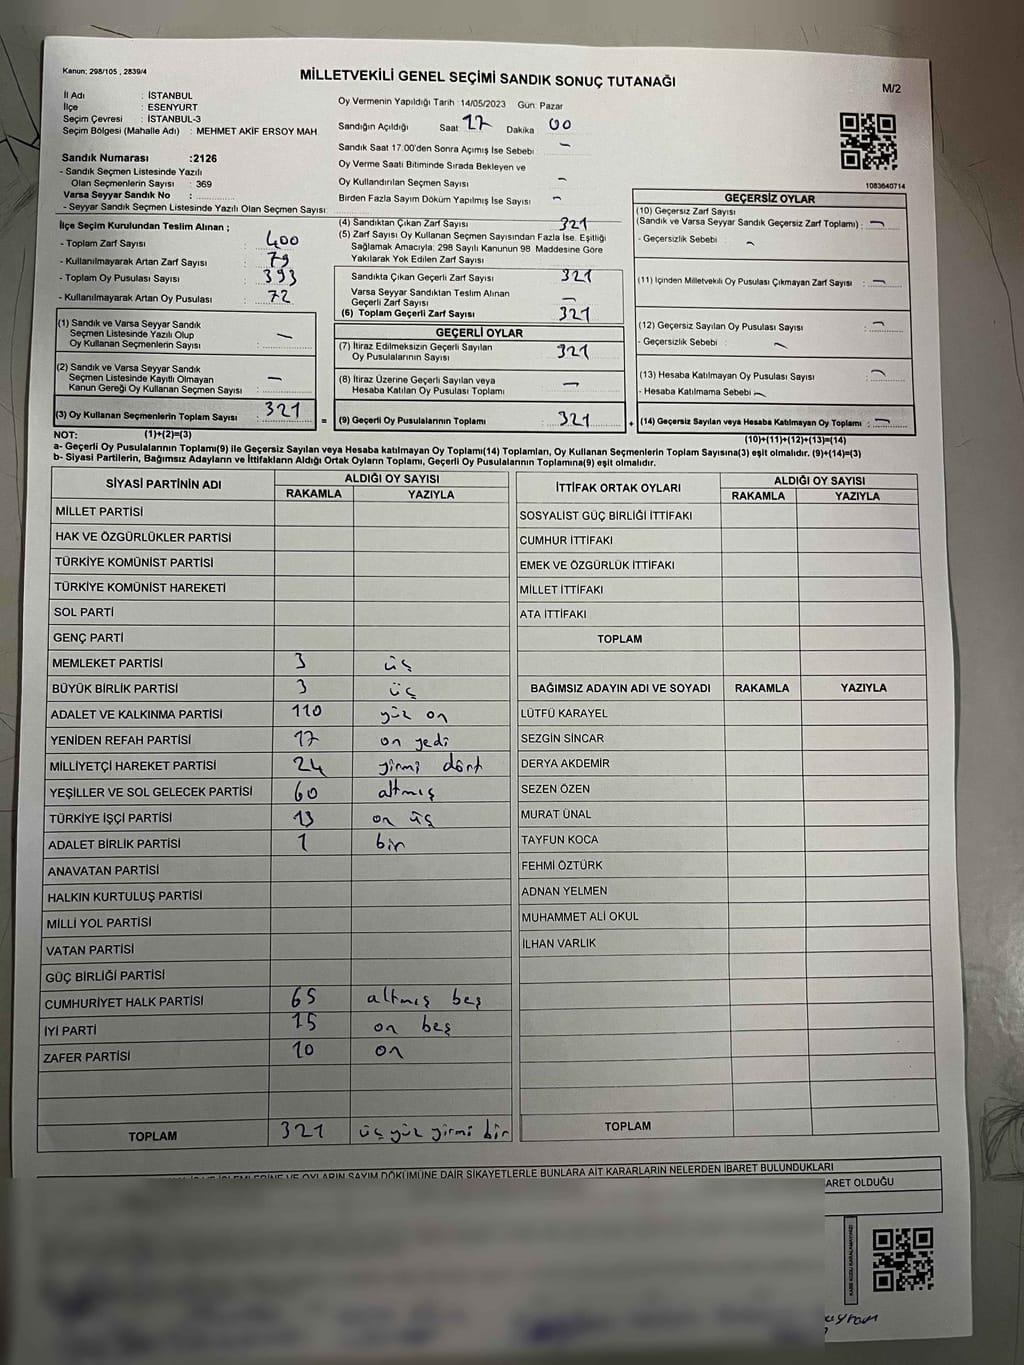 Kanun; 298/105 , 2839/4
MİLLETVEKİLİ GENEL SEÇİMİ SANDIK SONUÇ TUTANAĞI
M/2
İl Adı : İSTANBUL
İlçe : ESENYURT
Seçim Çevresi : İSTANBUL-3
Seçim Bölgesi (Mahalle Adı) : MEHMET AKİF ERSOY MAH.
Sandık Numarası :2126
- Sandık Seçmen Listesinde Yazılı
Olan Seçmenlerin Sayısı : 369
Varsa Seyyar Sandık No :
- Seyyar Sandık Seçmen Listesinde Yazılı Olan Seçmen Sayısı:
Oy Vermenin Yapıldığı Tarih :14/05/2023 Gün: Pazar
Sandığın Açıldığı Saat 17 Dakika 00
Sandık Saat 17.00'den Sonra Açımış İse Sebebi : -
Oy Verme Saati Bitiminde Sırada Bekleyen ve
Oy Kullandırılan Seçmen Sayısı : -
Birden Fazla Sayım Döküm Yapılmış İse Sayısı : -
1083640714
İlçe Seçim Kurulundan Teslim Alınan ;
- Toplam Zarf Sayısı : 400
- Kullanılmayarak Artan Zarf Sayısı : 79
- Toplam Oy Pusulası Sayısı : 393
- Kullanılmayarak Artan Oy Pusulası : 72
(1) Sandık ve Varsa Seyyar Sandık
Seçmen Listesinde Yazılı Olup
Oy Kullanan Seçmenlerin Sayısı : -
(2) Sandık ve Varsa Seyyar Sandık
Seçmen Listesinde Kayıtlı Olmayan
Kanun Gereği Oy Kullanan Seçmen Sayısı : -
(3) Oy Kullanan Seçmenlerin Toplam Sayısı : 321
(4) Sandıktan Çıkan Zarf Sayısı : 321
(5) Zarf Sayısı Oy Kullanan Seçmen Sayısından Fazla İse, Eşitliği
Sağlamak Amacıyla; 298 Sayılı Kanunun 98. Maddesine Göre
Yakılarak Yok Edilen Zarf Sayısı :
Sandıkta Çıkan Geçerli Zarf Sayısı : 321
Varsa Seyyar Sandıktan Teslim Alınan
Geçerli Zarf Sayısı : -
(6) Toplam Geçerli Zarf Sayısı : 321
GEÇERLİ OYLAR
(7) İtiraz Edilmeksizin Geçerli Sayılan
Oy Pusulalarının Sayısı : 321
(8) İtiraz Üzerine Geçerli Sayılan veya
Hesaba Katılan Oy Pusulası Toplamı : -
= (9) Geçerli Oy Pusulalarının Toplamı : 321
GEÇERSİZ OYLAR
(10) Geçersiz Zarf Sayısı
(Sandık ve Varsa Seyyar Sandık Geçersiz Zarf Toplamı) : -
- Geçersizlik Sebebi : -
(11) İçinden Milletvekili Oy Pusulası Çıkmayan Zarf Sayısı : -
(12) Geçersiz Sayılan Oy Pusulası Sayısı : -
- Geçersizlik Sebebi : -
(13) Hesaba Katılmayan Oy Pusulası Sayısı : -
- Hesaba Katılmama Sebebi : -
+ (14) Geçersiz Sayılan veya Hesaba Katılmayan Oy Toplamı : -
NOT: (1)+(2)=(3)
(10)+(11)+(12)+(13)=(14)
a- Geçerli Oy Pusulalarının Toplamı(9) ile Geçersiz Sayılan veya Hesaba katılmayan Oy Toplamı(14) Toplamları, Oy Kullanan Seçmenlerin Toplam Sayısına(3) eşit olmalıdır. (9)+(14)=(3)
b- Siyasi Partilerin, Bağımsız Adayların ve İttifakların Aldığı Ortak Oyların Toplamı, Geçerli Oy Pusulalarının Toplamına(9) eşit olmalıdır.
SİYASİ PARTİNİN ADI ALDIĞI OY SAYISI
RAKAMLA YAZIYLA
MİLLET PARTİSİ
HAK VE ÖZGÜRLÜKLER PARTİSİ
TÜRKİYE KOMÜNİST PARTİSİ
TÜRKİYE KOMÜNİST HAREKETİ
SOL PARTİ
GENÇ PARTİ
MEMLEKET PARTİSİ 3 üç
BÜYÜK BİRLİK PARTİSİ 3 üç
ADALET VE KALKINMA PARTİSİ 110 yüz on
YENİDEN REFAH PARTİSİ 17 on yedi
MİLLİYETÇİ HAREKET PARTİSİ 24 yirmi dört
YEŞİLLER VE SOL GELECEK PARTİSİ 60 altmış
TÜRKİYE İŞÇİ PARTİSİ 13 on üç
ADALET BİRLİK PARTİSİ 1 bir
ANAVATAN PARTİSİ
HALKIN KURTULUŞ PARTİSİ
MİLLİ YOL PARTİSİ
VATAN PARTİSİ
GÜÇ BİRLİĞİ PARTİSİ
CUMHURİYET HALK PARTİSİ 65 altmış beş
İYİ PARTİ 15 on beş
ZAFER PARTİSİ 10 on
TOPLAM 321 üç yüz yirmi bir
İTTİFAK ORTAK OYLARI ALDIĞI OY SAYISI
RAKAMLA YAZIYLA
SOSYALİST GÜÇ BİRLİĞİ İTTİFAKI
CUMHUR İTTİFAKI
EMEK VE ÖZGÜRLÜK İTTİFAKI
MİLLET İTTİFAKI
ATA İTTİFAKI
TOPLAM
BAĞIMSIZ ADAYIN ADI VE SOYADI RAKAMLA YAZIYLA
LÜTFÜ KARAYEL
SEZGİN SİNCAR
DERYA AKDEMİR
SEZEN ÖZEN
MURAT ÜNAL
TAYFUN KOCA
FEHMİ ÖZTÜRK
ADNAN YELMEN
MUHAMMET ALİ OKUL
İLHAN VARLIK
TOPLAM
VE OYLARIN SAYIM DÖKÜMÜNE DAİR ŞİKAYETLERLE BUNLARA AİT KARARLARIN NELERDEN İBARET BULUNDUKLARI
OLDUĞU